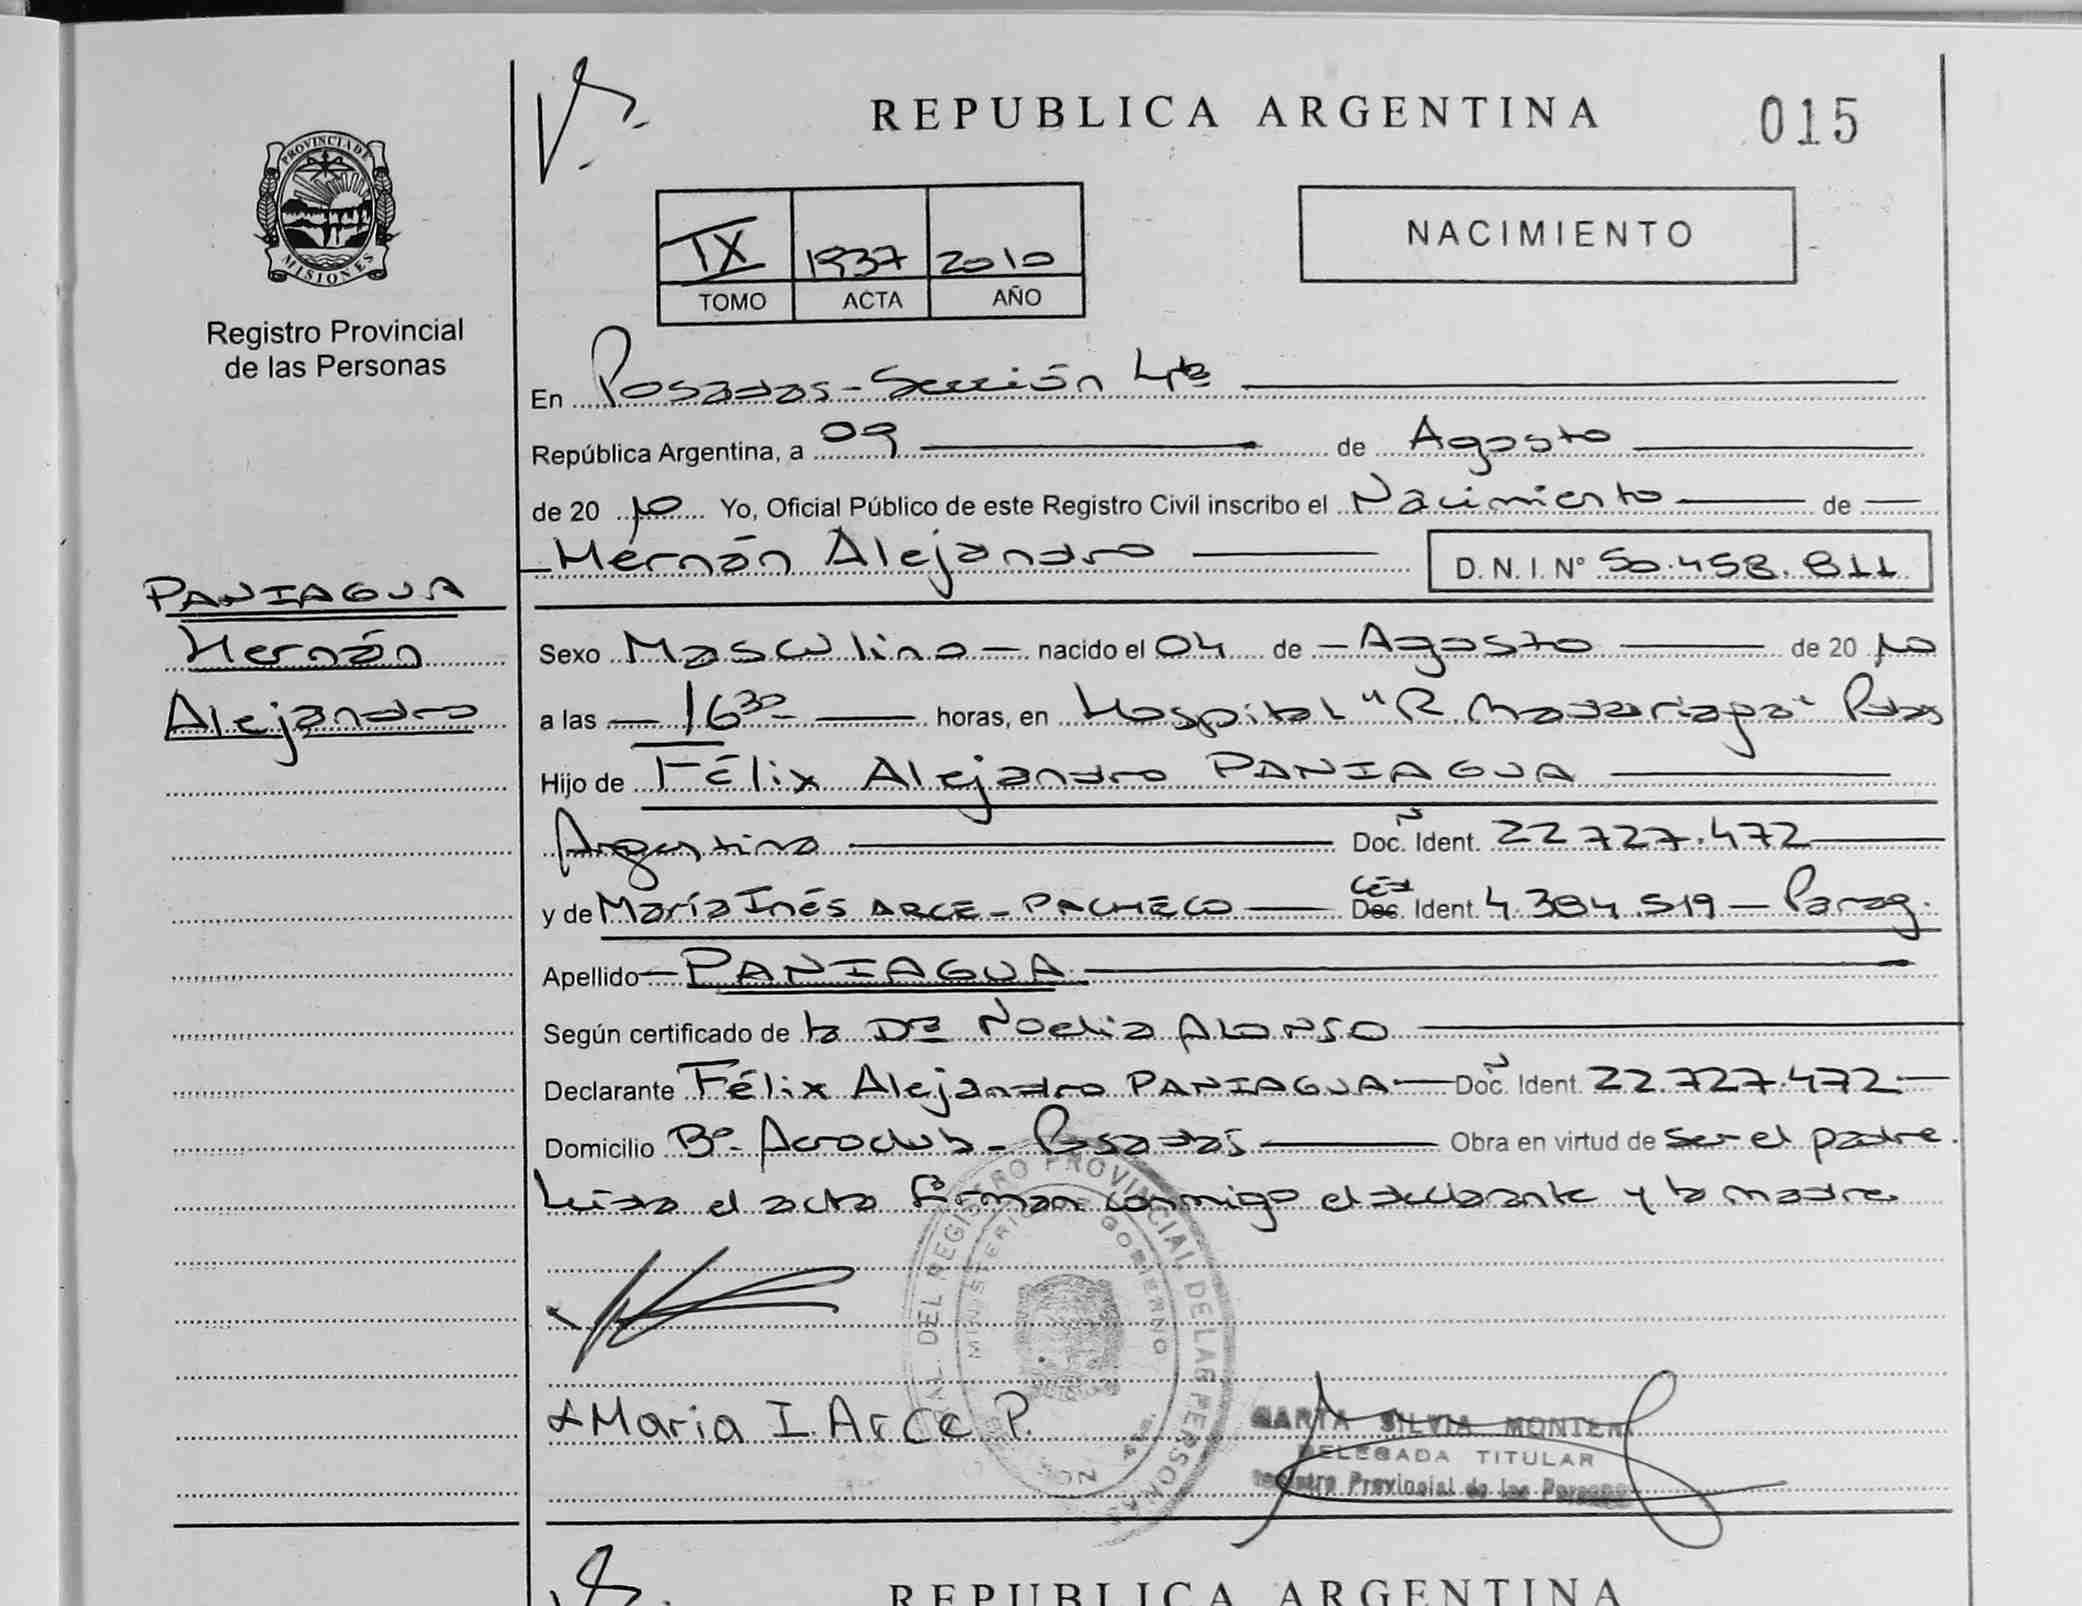 REPUBLICA ARGENTINA
015
PROVINCIA DE MISIONES
Registro Provincial
de las Personas
IX 1937 2010
TOMO ACTA AÑO
NACIMIENTO
En Posadas - Sección 4ta
República Argentina, a 09 de Agosto
de 2010 Yo, Oficial Público de este Registro Civil inscribo el Nacimiento de
Hernán Alejandro D. N. I. Nº 50.458.811
PANIAGUA
Hernán
Alejandro
Sexo Masculino nacido el 04 de Agosto de 2010
a las 16 30 horas, en Hospital "R. Madariaga" Pdas
Hijo de Félix Alejandro PANIAGUA
Argentino Doc. Ident. 22.727.472
y de María Inés ARCE - PACHECO Céd Doc. Ident. 4.384.519 - Parag.
Apellido PANIAGUA
Según certificado de la Dra Noelia ALONSO
Declarante Félix Alejandro PANIAGUA Doc. Ident. 22.727.472
Domicilio Bº Aeroclub - Posadas Obra en virtud de ser el padre.
Leída el acta firman conmigo el declarante y la madre
DEL REGISTRO PROVINCIAL DE LAS PERSONAS
MINISTERIO DE GOBIERNO
Maria I. Arce P.
MARTA SILVIA MONTERO
DELEGADA TITULAR
Registro Provincial de las Personas
REPUBLICA ARGENTINA